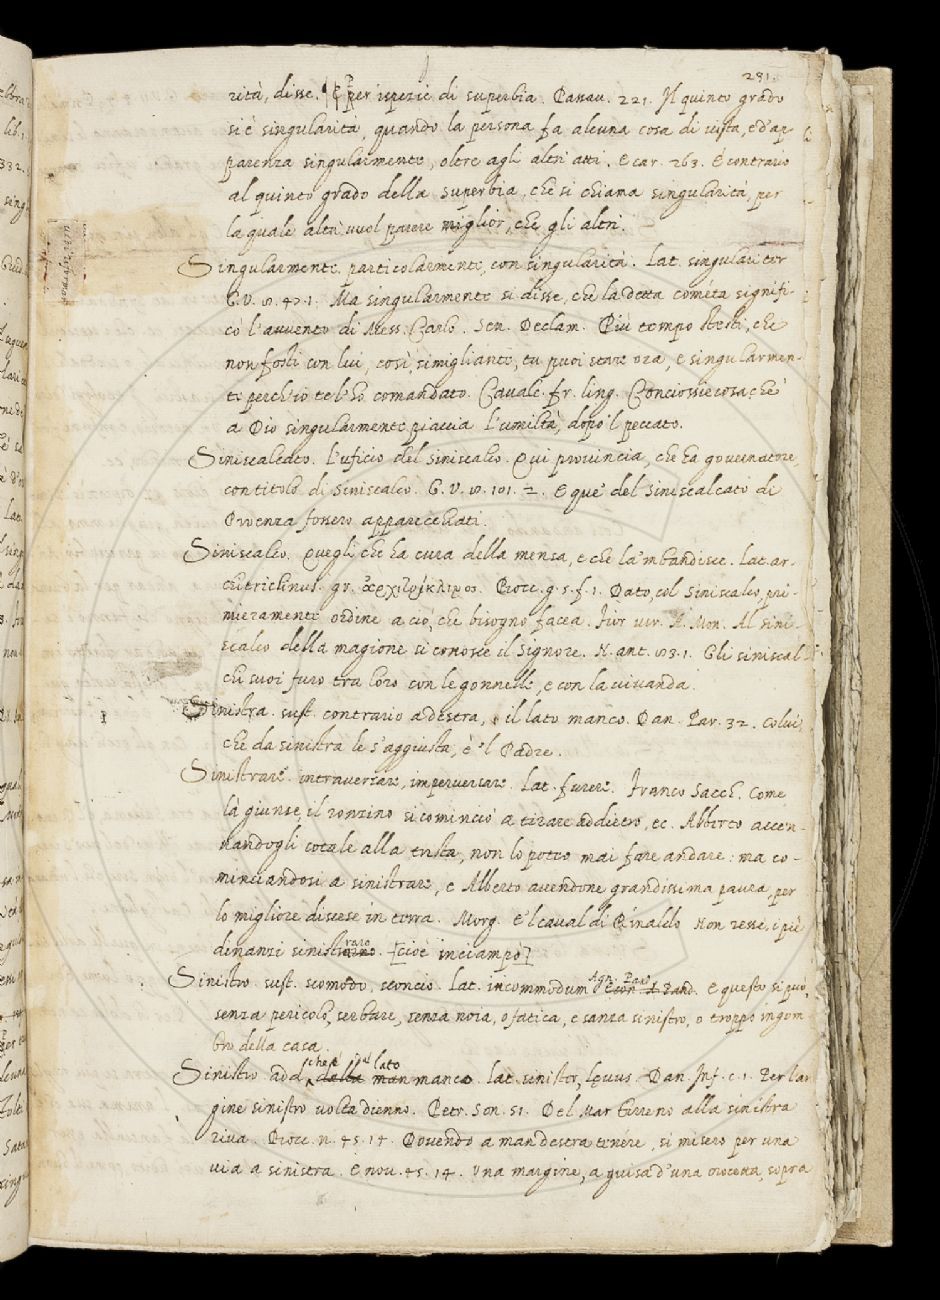 231.
rità, disse. per ispezie di superbia. Passau. 221. Il quinto grado
si è singularità, quando la persona fa alcuna cosa di vista, e d'ap-
parenza singularmente, oltre agli altri atti. E car. 263. È contrario
al quinto grado della superbia, che si chiama singularità, per
la quale altri vuol parere miglior, che gli altri.
Singularmente. particolarmente, con singularità. Lat. singulariter
G.V. 47.1. Ma singularmente si disse, che la detta cometa signifi-
cò l'avvento di Mess. Carlo. Sen. Declam. Più tempo stesti, che
non fosti con lui, così simigliante, tu puoi stare ora, e singularmen-
te perch'io te l'hò comandato. Cavalc. fr. ling. Conciossiecosachè
a Dio singularmente piaccia l'umiltà, dopo 'l peccato.
Siniscalcato. l'uficio del siniscalco. Qui provincia, che ha governatore,
con titolo di Siniscalco. G.V. 101. 2. E que' del Siniscalcato di
Provenza fossero apparecchiati.
Siniscalco. Quegli che ha cura della mensa, e che la 'mbandisce. lat. ar-
chitriclinus. gr. ἀρχιτρίκλινος. Bocc. g.5.f.1. Dato, col Siniscalco, pri-
mieramente ordine a ciò, che bisogno facea. M. Mon. Al sini-
scalco della magione si conosce il signore. N. ant. Gli siniscal-
chi suoi furo tra loro con le gonnelle, e con la vivanda.
Sinistra. sust. contrario a destra, il lato manco. Dan. Par. 32. Colui,
che da sinistra le s'aggiusta, è 'l Padre.
Sinistrare. intraversare, imperversare. Lat. furere. Franco Sacch. Come
là giunse, il ronzino si cominciò a tirare addietro, ec. Alberto accen-
nandogli cotale alla trista, non lo poteo mai fare andare: ma co-
minciandosi a sinistrare, e Alberto avendone grandissima paura, per
lo migliore discese in terra. Morg. E 'l caval di Rinaldo Non resse, i piè
dinanzi sinistraro [cioè inciampò]
Sinistro. sust. scomodo, sconcio. Lat. incommodum Agn. Pand. E questo si può,
senza pericolo, serbare, senza noia, o fatica, e sanza sinistro, o troppo ingom-
bro della casa.
Sinistro add. che è dal lato manco. lat. sinister, lęvus. Dan. Inf. c.1. Per l'ar-
gine sinistro volta dienno. Petr. Son. 51. Del Mar Tirreno alla sinistra
riva. Bocc. n. 45. 14. Dovendo a man destra tenere, si misero per una
via a sinistra. E nov. 45. 14. Una margine, a guisa d'una crocetta, sopra